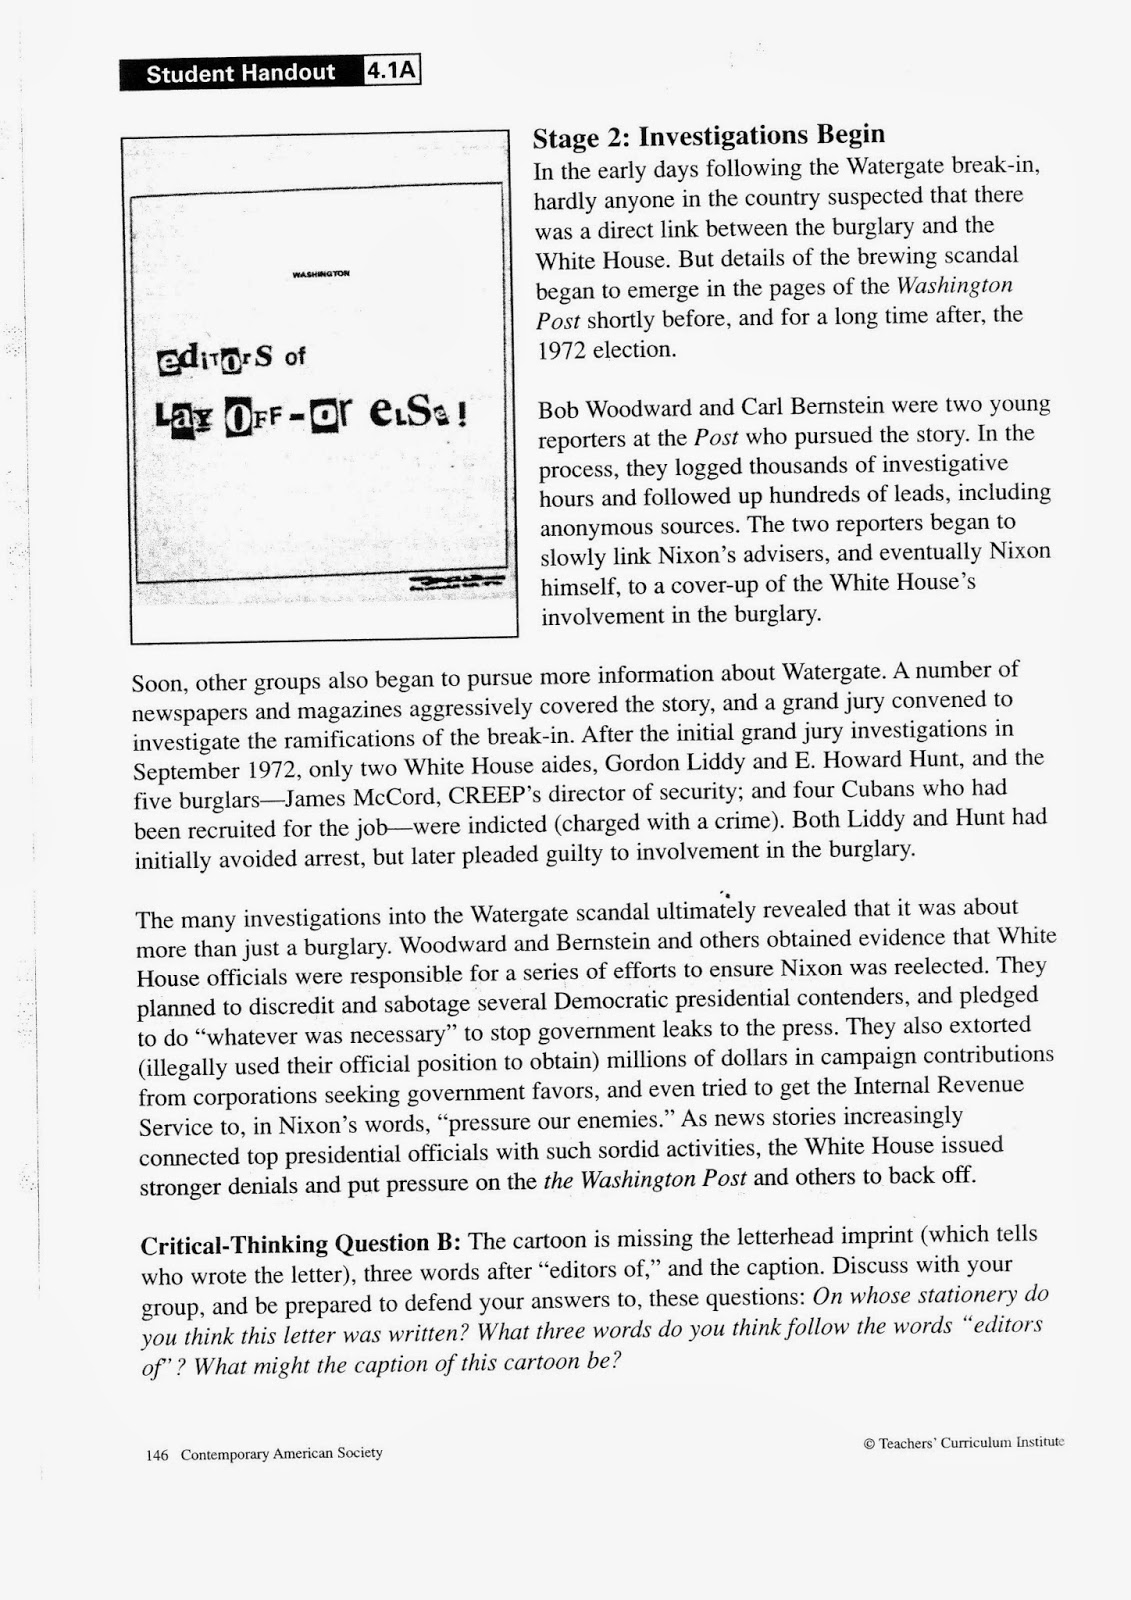 Student Handout 4.1A
WASHINGTON
editors of
Lay off-or else!
Stage 2: Investigations Begin
In the early days following the Watergate break-in,
hardly anyone in the country suspected that there
was a direct link between the burglary and the
White House. But details of the brewing scandal
began to emerge in the pages of the Washington
Post shortly before, and for a long time after, the
1972 election.
Bob Woodward and Carl Bernstein were two young
reporters at the Post who pursued the story. In the
process, they logged thousands of investigative
hours and followed up hundreds of leads, including
anonymous sources. The two reporters began to
slowly link Nixon's advisers, and eventually Nixon
himself, to a cover-up of the White House's
involvement in the burglary.
Soon, other groups also began to pursue more information about Watergate. A number of
newspapers and magazines aggressively covered the story, and a grand jury convened to
investigate the ramifications of the break-in. After the initial grand jury investigations in
September 1972, only two White House aides, Gordon Liddy and E. Howard Hunt, and the
five burglars—James McCord, CREEP's director of security; and four Cubans who had
been recruited for the job—were indicted (charged with a crime). Both Liddy and Hunt had
initially avoided arrest, but later pleaded guilty to involvement in the burglary.
The many investigations into the Watergate scandal ultimately revealed that it was about
more than just a burglary. Woodward and Bernstein and others obtained evidence that White
House officials were responsible for a series of efforts to ensure Nixon was reelected. They
planned to discredit and sabotage several Democratic presidential contenders, and pledged
to do "whatever was necessary" to stop government leaks to the press. They also extorted
(illegally used their official position to obtain) millions of dollars in campaign contributions
from corporations seeking government favors, and even tried to get the Internal Revenue
Service to, in Nixon's words, "pressure our enemies." As news stories increasingly
connected top presidential officials with such sordid activities, the White House issued
stronger denials and put pressure on the the Washington Post and others to back off.
Critical-Thinking Question B: The cartoon is missing the letterhead imprint (which tells
who wrote the letter), three words after "editors of," and the caption. Discuss with your
group, and be prepared to defend your answers to, these questions: On whose stationery do
you think this letter was written? What three words do you think follow the words "editors
of"? What might the caption of this cartoon be?
146 Contemporary American Society
© Teachers' Curriculum Institute